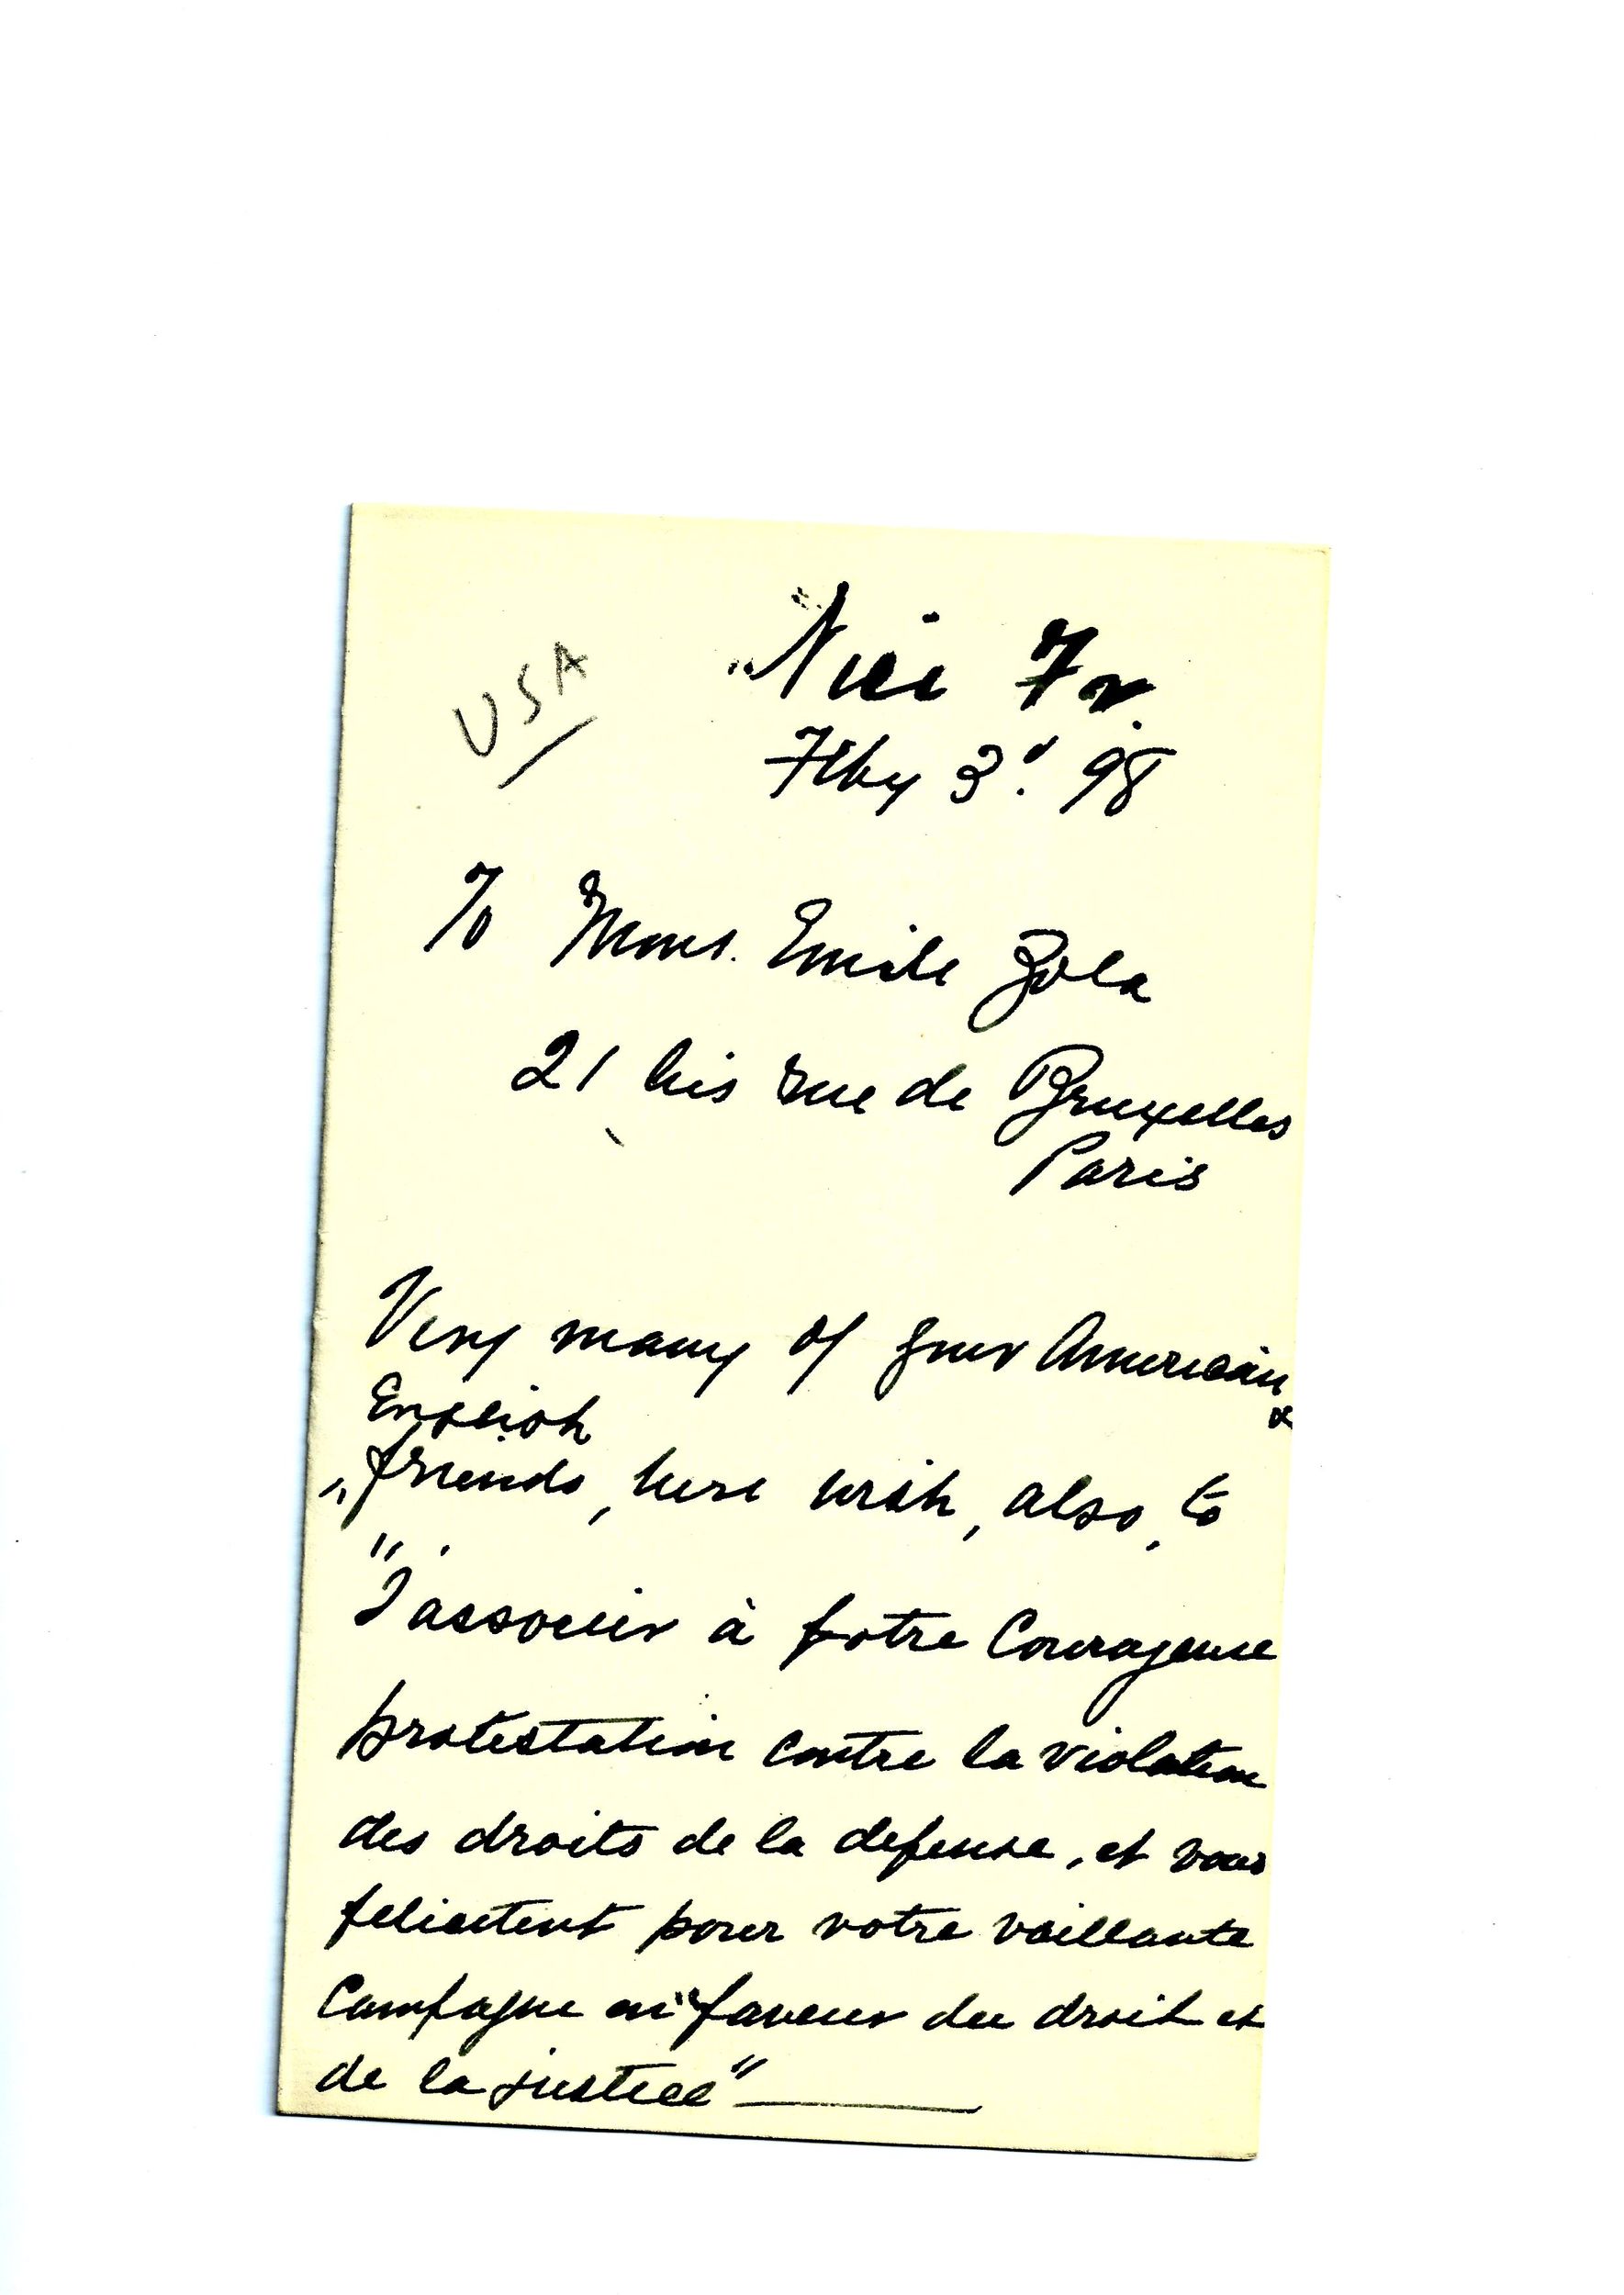 USA
"Nice Fr.
Feby 3d. 98
To Mons. Emile Zola
21 bis rue de Bruxelles
Paris
Very many of your American &
English
friends, here wish, also, to
"S'associer à votre Courageuse
protestation contre la violation
des droits de la defense, et vous
felicitent pour votre vaillante
Campagne en faveur du droit et
de la justice"